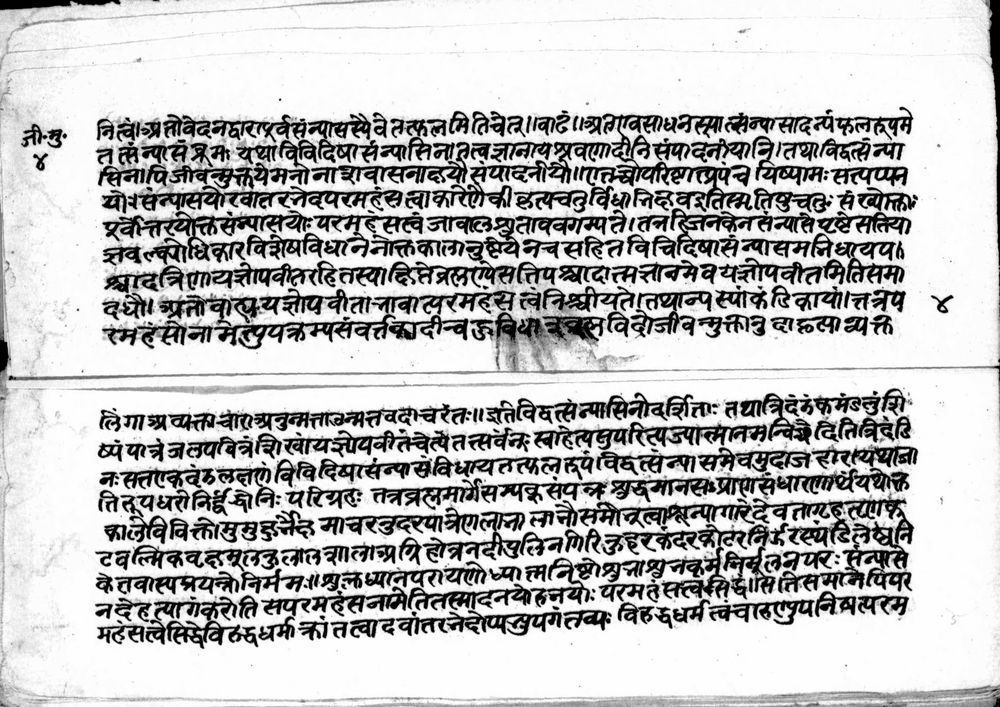 जी.मु.
४
नित्वं। अतो वेदनद्वारा पूर्वसंन्यासस्यैवे तत्फलमिति चेत्॥ बाढं॥ अतएव साधनरूपात्संन्यासादन्यं फलरूपमे
तत्संन्यासं ब्रूमः यथा विविदिषासंन्यासिना तत्वज्ञानाय श्रवणादीनि संपादनीयानि। तथा विद्वत्संन्या
सिनापि जीवन्मुक्तये मनोनाशवासनाक्षयौ संपादनीयौ। एतच्चोपरिष्टात्प्रपंच यिष्यामः सत्यप्यन
योः संन्यासयोरवांतरभेदे परमहंसत्वाकारेणैकीकृत्य चतुर्विधा भिक्षव इति स्मृतिषु चतुः संख्योक्ताः
पूर्वोत्तरयोरुक्तसंन्यासयोः परमहंसत्वं जाबालश्रुतावगम्यते। तत्र हि जनकेन संन्यासे पृष्टे सति या
ज्ञवल्क्योधिकारविशेषविधानेनोक्तकालानुष्ठेयेन च सहितं विविदिषासंन्यासमभिधाय प
श्चादत्रिणा यज्ञोपवीतरहितस्या क्षिप्ते ब्रह्मण्ये सति पश्चादात्मज्ञानमेव यज्ञोपवीतमिति समा
दधौ। अतो बाह्य यज्ञोपवीताभावात्परमहंसत्वं निश्चीयते। तथान्यस्यां कंडिकायां। तत्र प
४
रमहंसोनामेत्युपक्रम्य संवर्तकादीन्बहु विधान्ब्रह्मविदो जीवन्मुक्तानुदाहृत्याव्यक्त
लिंगा अव्यक्ताचारा अनुन्मत्ता उन्मत्तवदाचरंतः॥ इति विद्वत्संन्यासिनो दर्शिताः तथा त्रिदंडं कमंडलुं शि
ष्यं पात्रं जलपवित्रं शिखां यज्ञोपवीतं चेत्येतत्सर्वं भूः स्वाहेत्यप्सु परित्यज्यात्मानमन्विच्छेदिति त्रिदंडि
नः सत एकदंडलक्षणं विविदिषासंन्यासं विधाय तत्फलरूपं विद्वत्संन्यासमेवमुदाजहार यथा जा
तरूपधरो निर्द्वंद्वो निः परिग्रहः तत्र ब्रह्ममार्गे सम्यक् संपन्नः शुद्धमानसः प्राणसंधारणार्थं यथोक्त
काले विविक्तो मुमुक्षुर्भैक्ष माचरन्नुदरपात्रेण लाभा लाभौ समौ कृत्वा शून्यागारदेवतागृहतृणकू
टवल्मिकवृक्षमूलकुलालशालाअग्निहोत्रनदीपुलिनगिरिकुहरकंदरकोटरनिर्झरस्थंडिलेष्वनि
केतवास्यप्रयत्नो निर्ममः॥ शुक्लध्यानपरायणोध्यात्मनिष्ठो शुभाशुभकर्मनिर्मूलनपरः संन्यासे
न देहत्यागं करोति स परमहंसनामेति तस्मादनयोरुभयोः परमहंसत्वं सिद्धं॥ सति समानेपि पर
महंसत्वे सिद्धे विरुद्धधर्माक्रांतत्वादवांतरभेदोप्यभ्युपगंतव्यः विरुद्धधर्मत्वं चारुण्युपनिषत्परम